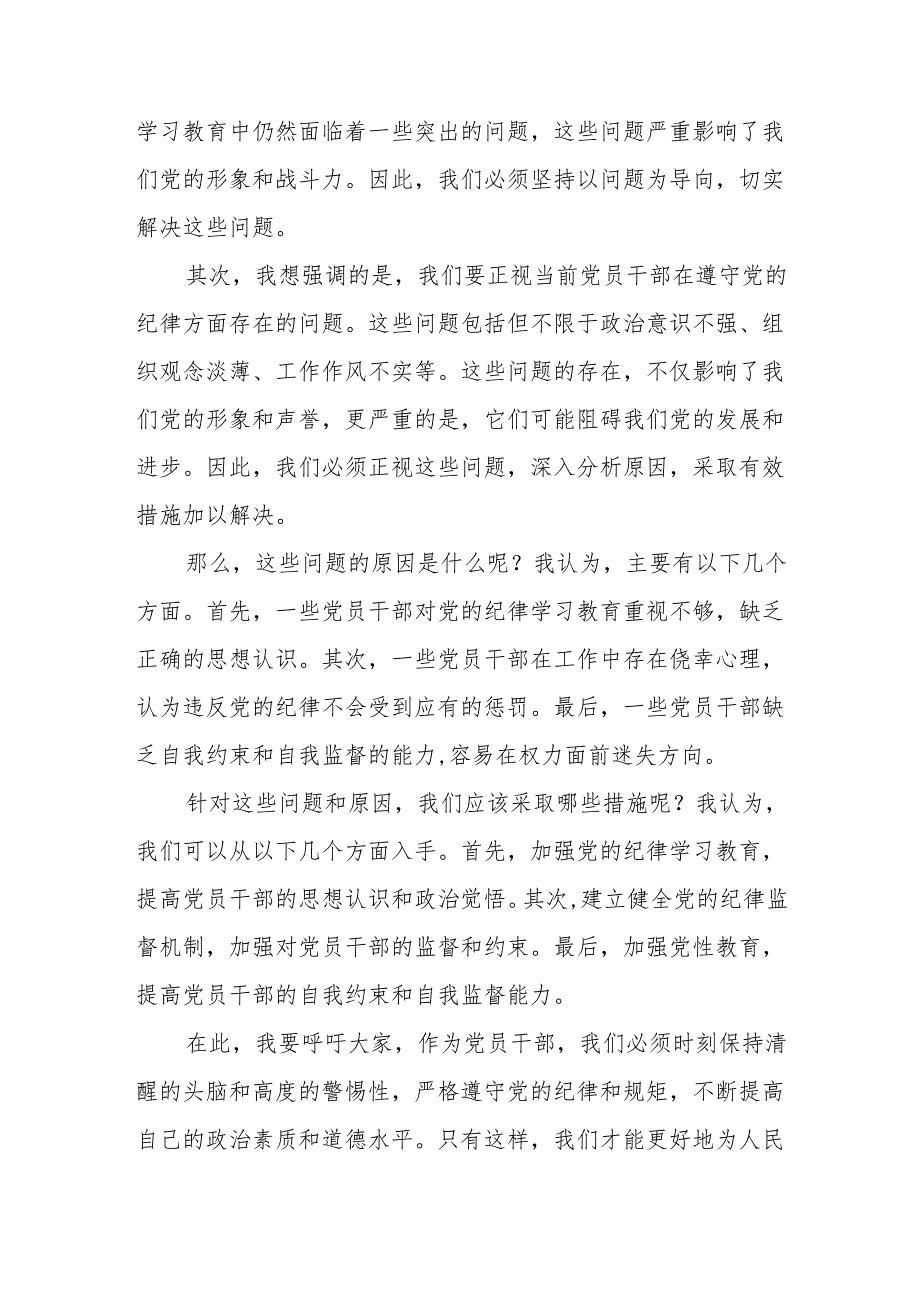 学习教育中仍然面临着一些突出的问题，这些问题严重影响了我
们党的形象和战斗力。因此，我们必须坚持以问题为导向，切实
解决这些问题。
其次，我想强调的是，我们要正视当前党员干部在遵守党的
纪律方面存在的问题。这些问题包括但不限于政治意识不强、组
织观念淡薄、工作作风不实等。这些问题的存在，不仅影响了我
们党的形象和声誉，更严重的是，它们可能阻碍我们党的发展和
进步。因此，我们必须正视这些问题，深入分析原因，采取有效
措施加以解决。
那么，这些问题的原因是什么呢？我认为，主要有以下几个
方面。首先，一些党员干部对党的纪律学习教育重视不够，缺乏
正确的思想认识。其次，一些党员干部在工作中存在侥幸心理，
认为违反党的纪律不会受到应有的惩罚。最后，一些党员干部缺
乏自我约束和自我监督的能力,容易在权力面前迷失方向。
针对这些问题和原因，我们应该采取哪些措施呢？我认为，
我们可以从以下几个方面入手。首先，加强党的纪律学习教育，
提高党员干部的思想认识和政治觉悟。其次,建立健全党的纪律监
督机制，加强对党员干部的监督和约束。最后，加强党性教育，
提高党员干部的自我约束和自我监督能力。
在此，我要呼吁大家，作为党员干部，我们必须时刻保持清
醒的头脑和高度的警惕性，严格遵守党的纪律和规矩，不断提高
自己的政治素质和道德水平。只有这样，我们才能更好地为人民